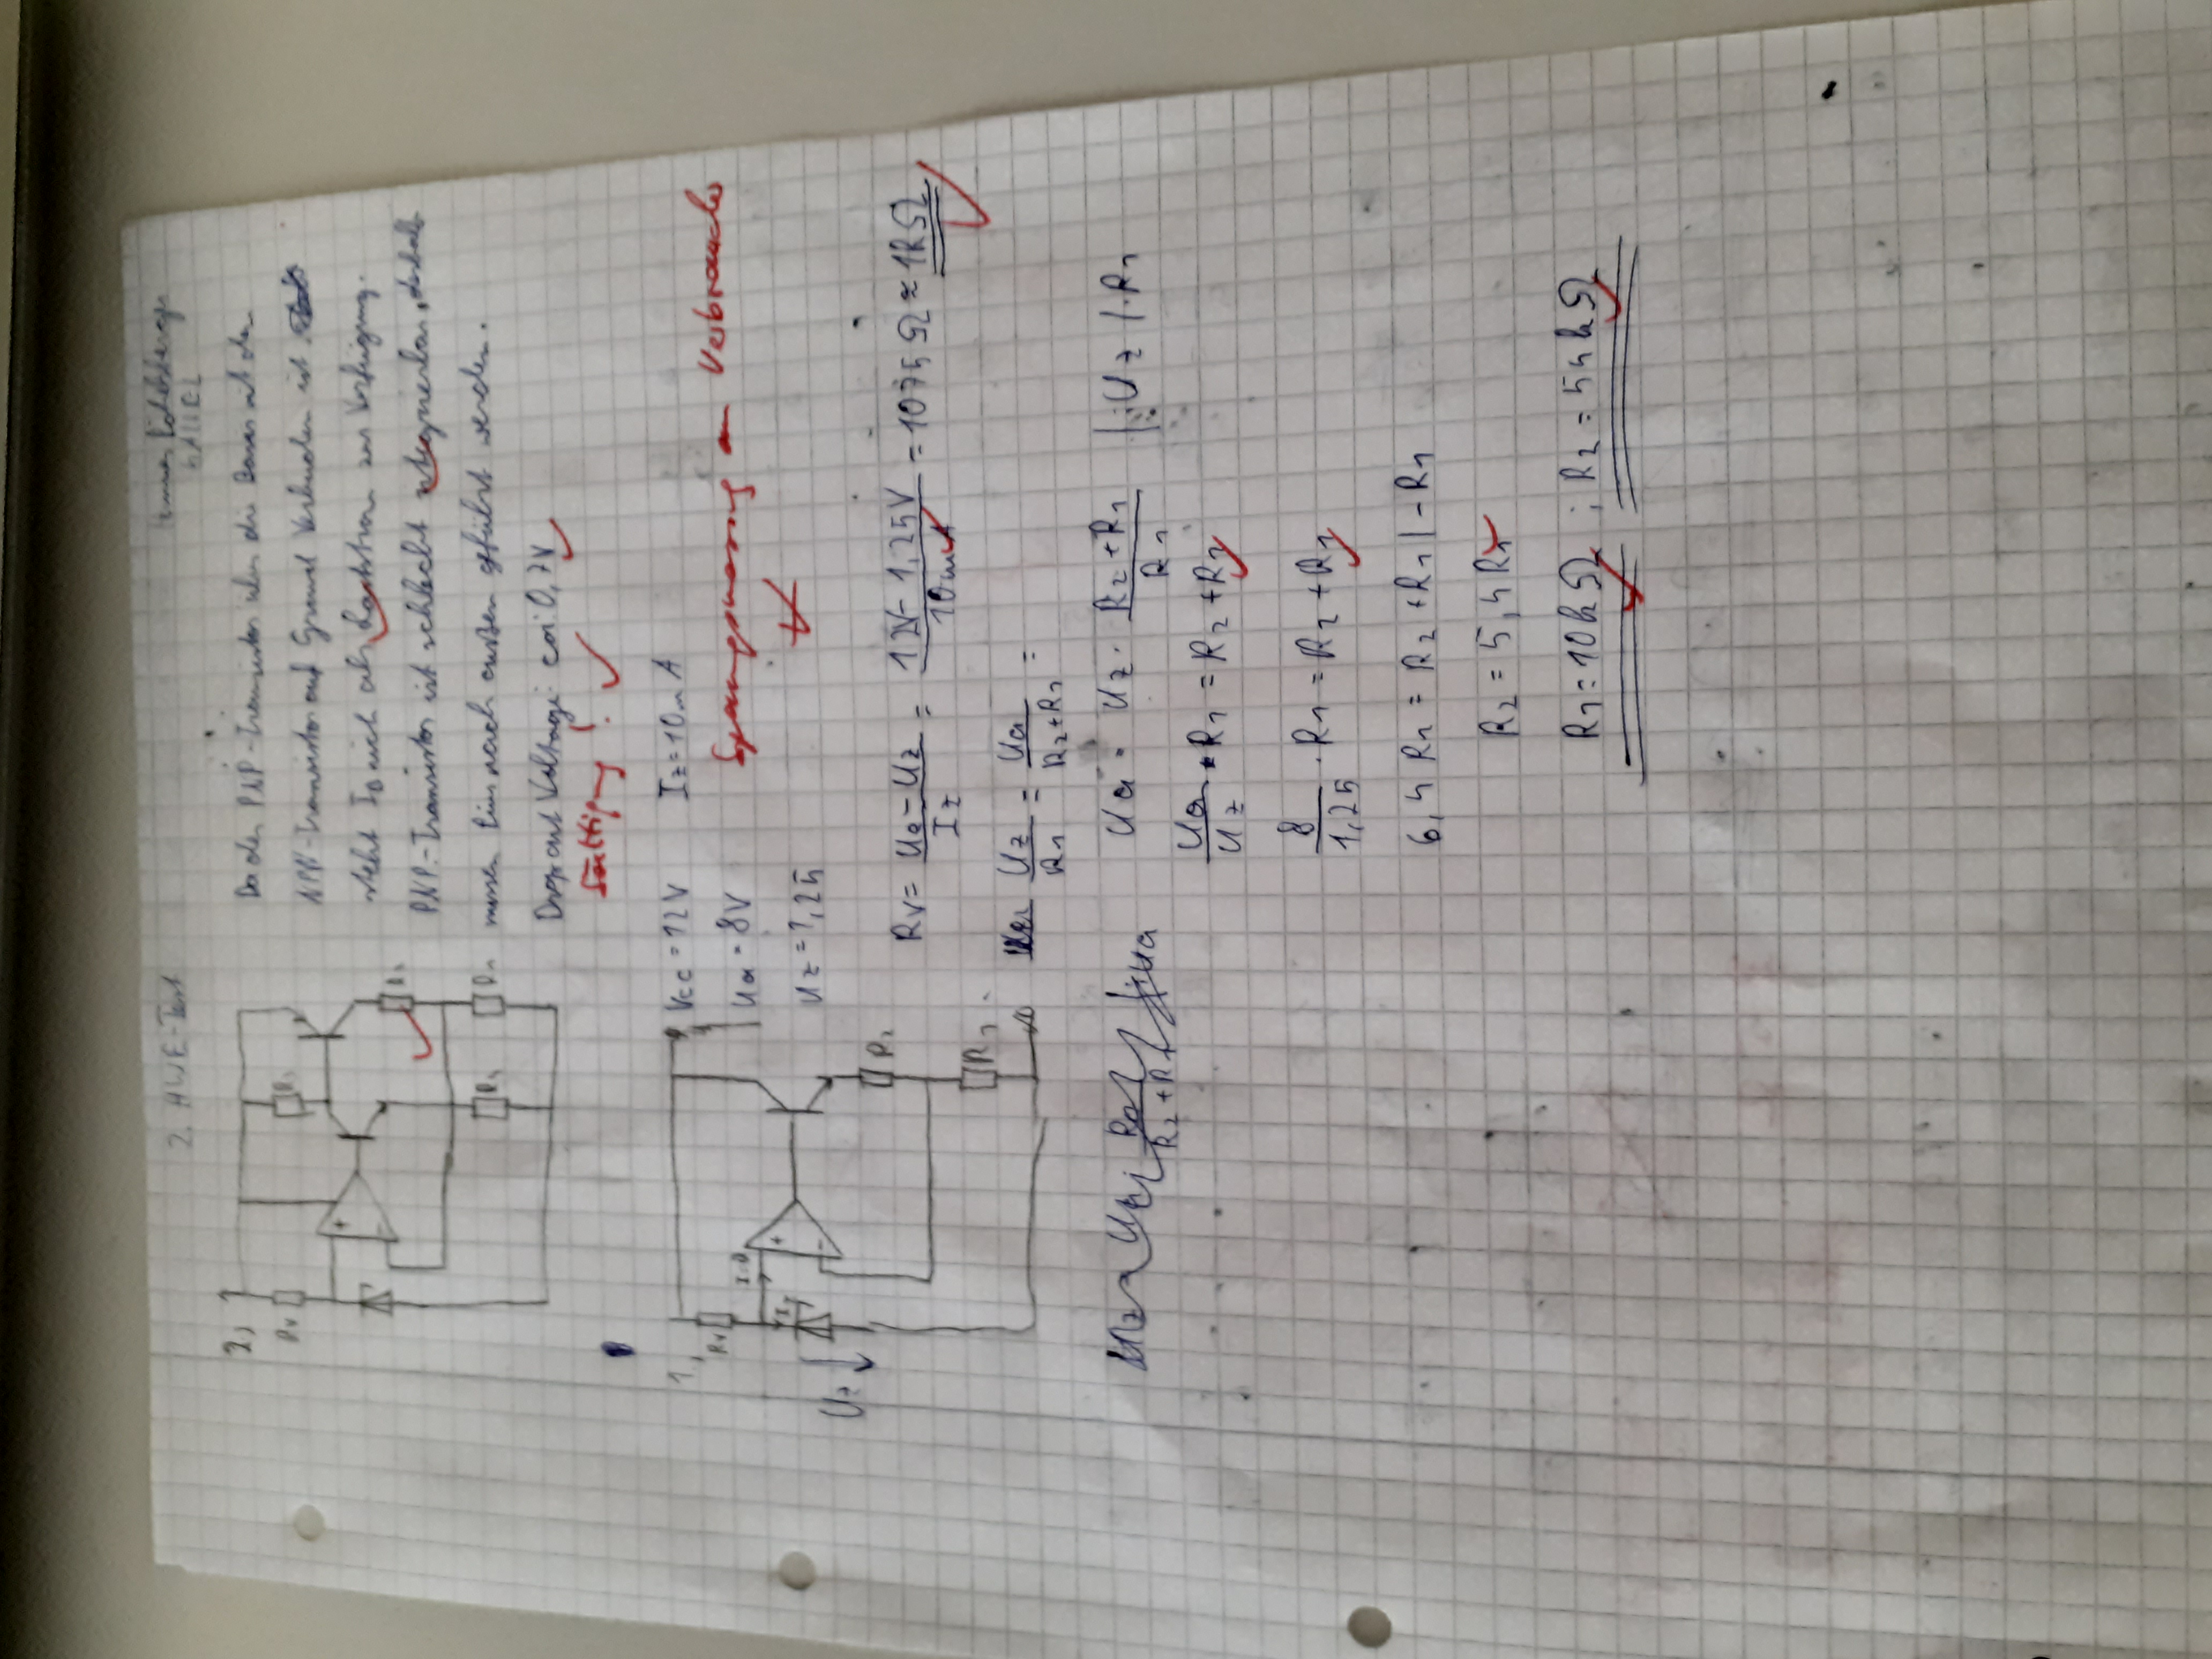 2. HWE-Test
2)
Rv
+
-
Da der PNP-Transistor über die Basis mit dem
NPN-Transistor auf Ground Verbunden ist
steht I0 nich als Laststrom zur Verfügung.
PNP-Transistor ist schlecht integrierbar, deshalb
müssen Pins nach außen geführt werden.
Drop out Voltage: ca: 0,7V
Sättigung !
1,
Rv
I=0
+
-
Uz
R2
R1
Vcc = 12V
Iz = 10mA
Ua = 8V
Uz = 1,25
Spanungsmessung am Verbraucher
Rv = (Ue - Uz) / Iz = (12V - 1,25V) / 10mA = 1075 Ω ≈ 1kΩ
Uz / R1 = Ua / (R2+R1) =
Ua = Uz · (R2 + R1) / R1 | :Uz | ·R1
Ua / Uz · R1 = R2 + R1
8 / 1,25 · R1 = R2 + R1
6,4 R1 = R2 + R1 | - R1
R2 = 5,4 R1
R1 = 10kΩ ; R2 = 54kΩ